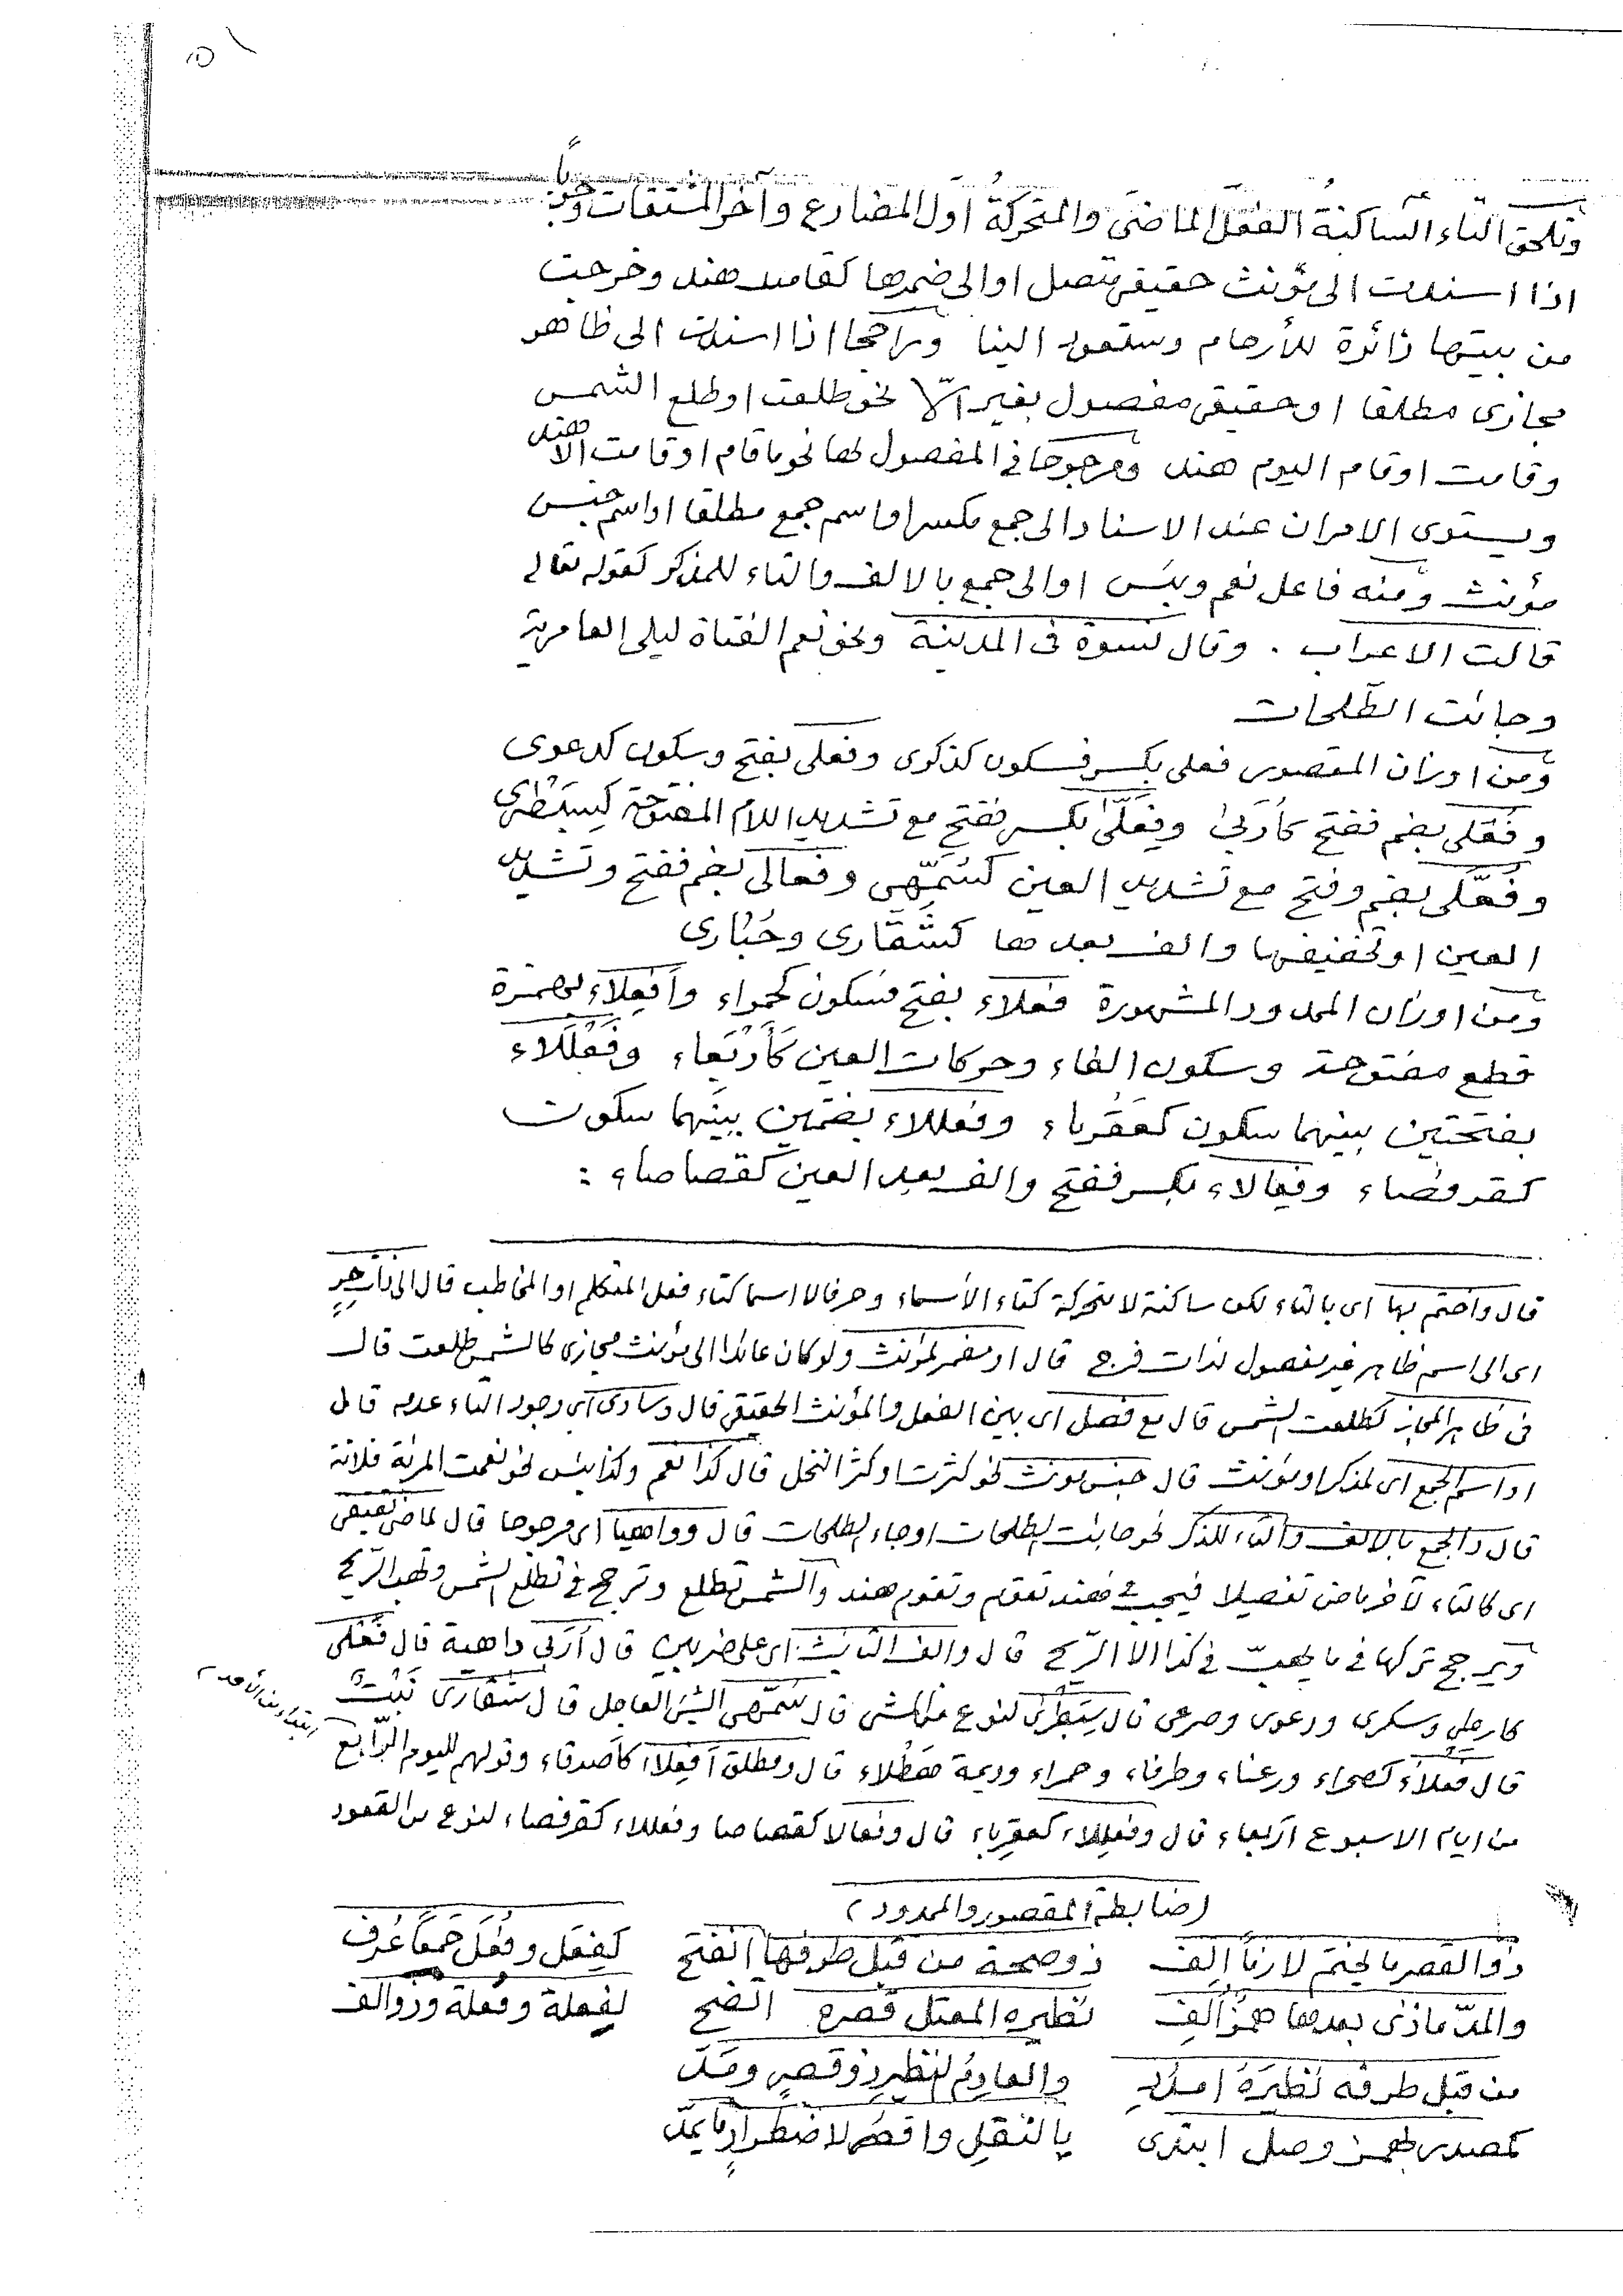 وتلحق التاء الساكنةُ الفعلَ الماضىَ والمتحركةُ اول المضارع وآخر المشتقات وجوباً
اذا اسندت الى مؤنث حقيقى متصل او الى ضميرها كقامت هند وخرجت
من بيتها زائرة للأرحام وستعود الينا وراجحا اذا اسندت الى ظاهر
مجازى مطلقا او حقيقى مفصول بغير الّا نحو طلعت او طلع الشمس
وقامت او قام اليوم هند ومرجوحا فى المفصول بها نحو ما قام او قامت الا هند
ويستوى الامران عند الاسناد الى جمع مكسر او اسم جمع مطلقا او اسم جنس
مؤنث ومنه فاعل نعم وبئس او الى جمع بالالف والتاء للمذكر كقوله تعالى
قالت الاعراب . وقال نسوة فى المدينة ونحو نعم الفتاة ليلى العامرية
وجائت الطلحات
ومن اوزان المقصور فعلى بكسر فسكون كذكرى وفعلى بفتح وسكون كدعوى
وفُعَلى بضم ففتح كأُرَبىٰ وفِعَلّىٰ بكسر ففتح مع تشديد اللام المفتوحة كسِبَطْرى
وفُعَّلى بضم وفتح مع تشديد العين كسُمَّهى وفعالى بضم ففتح وتشديد
العين او تخفيفها والف بعدها كشُقّارى وحُبارى
ومن اوزان الممدود المشهورة فعلاء بفتح فسكون كحمراء وأفعِلاء بهمزة
قطع مفتوحة وسكون الفاء وحركات العين كأربعاء وفَعْلَلاء
بفتحتين بينهما سكون كعقرباء وفعللاء بضمتين بينهما سكون
كقرفصاء وفِعالاء بكسر ففتح والف بعد العين كقصاصاء :
قال واختم بها اى بالتاء لكن ساكنة لا متحركة كتاء الأسماء وحرفا لا اسما كتاء فعل المتكلم او المخاطب قال الى ذات حِرٍ
اى الى اسم ظاهر غير مفصول لذات فرج قال او مضمر لمؤنث ولو كان عائدا الى مؤنث مجازى كالشمس طلعت قال
فى ظاهر المجاز كطلعت الشمس قال مع فصل اى بين الفعل والمؤنث الحقيقى قال وساوى اى وجود التاء عدمه قال
او اسم الجمع اى لمذكر او مؤنث قال جنس مونث نحو كثرت او كثر النخل قال كذا نعم وكذا بئس نحو نعمت المرئة فلانة
قال والجمع بالالف والتاء للذكر نحو جائت الطلحات او جاء الطلحات قال وواهيا اى مرجوحا قال لماضى
اى كالتاء لآخر ماض تفصيلا فيجب فى هند تقوم وتقوم هند والشمس تطلع وترجح فى تطلع الشمس وتهب الريح
ويرجح تركها فى ما يهبّ فى كذا الا الريح قال والف التانيث اى على ضربين قال أُرَبى داهية قال فَعْلى
كارطى وسكرى ودعوى وصرعى قال سِبَطْرىٰ لنوع من المشى قال سُمَّهى الشئ الفاصل قال شُقّارى نَبْتٌ
قال فَعْلاءُ كصحراء ورغباء وطرفاء وحمراء وديمة هَطْلاء قال ومطلق أفعِلاء كأصدقاء وقولهم لليوم الرّابع
من ايام الاسبوع اربعاء قال وفعللاء كعقرباء قال وفعالا كقصاصا وفعللاء كقرفصاء لنوع من القعود
(ضابطة المقصور والممدود)
ذو القصر ما يختم لازماً الف ذو صحة من قبل طرفها انفتح كفِعَلٍ وفُعَلٍ جمعاً عُرف
والمدّ ماذى بعدها همزُ ألِف نظيره المعتل قصره اتضح لفِعلة وفُعلة وذو الف
من قبل طرفه نظيرَهُ امدُد والعادِمُ النظيرِ ذو قصرٍ ومَدّ
كمصدر بهمز وصل ابتدى بالنقلِ واقصُر لاضطرارٍ ما يُمَدّ